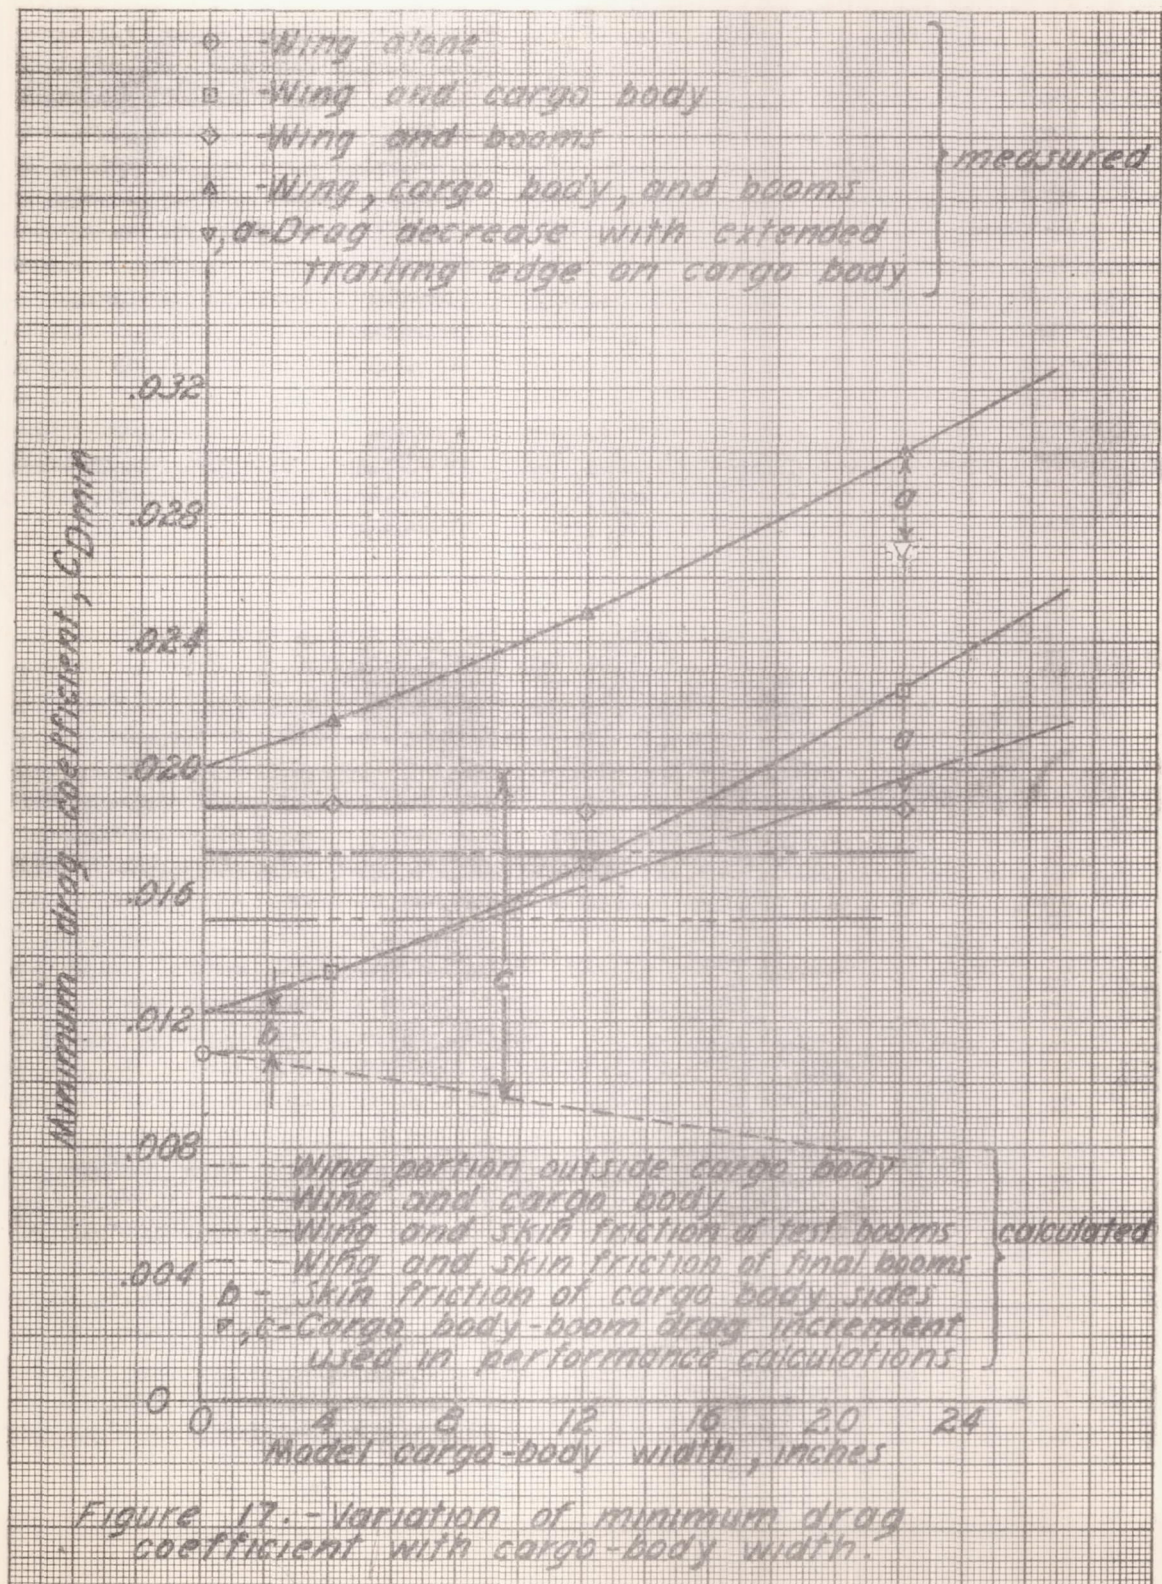 ○ -Wing alone
□ -Wing and cargo body
◇ -Wing and booms
△ -Wing, cargo body, and booms
▽, a-Drag decrease with extended
trailing edge on cargo body
measured
.032
.028
.024
.020
.016
.012
.008
.004
0
Minimum drag coefficient, CDmin
a
a
c
b
--- Wing portion outside cargo body
—— Wing and cargo body
—-— Wing and skin friction of test booms
—--— Wing and skin friction of final booms
b - Skin friction of cargo body sides
▽, c-Cargo body-boom drag increment
used in performance calculations
calculated
0 4 8 12 16 20 24
Model cargo-body width, inches
Figure 17.-Variation of minimum drag
coefficient with cargo-body width.